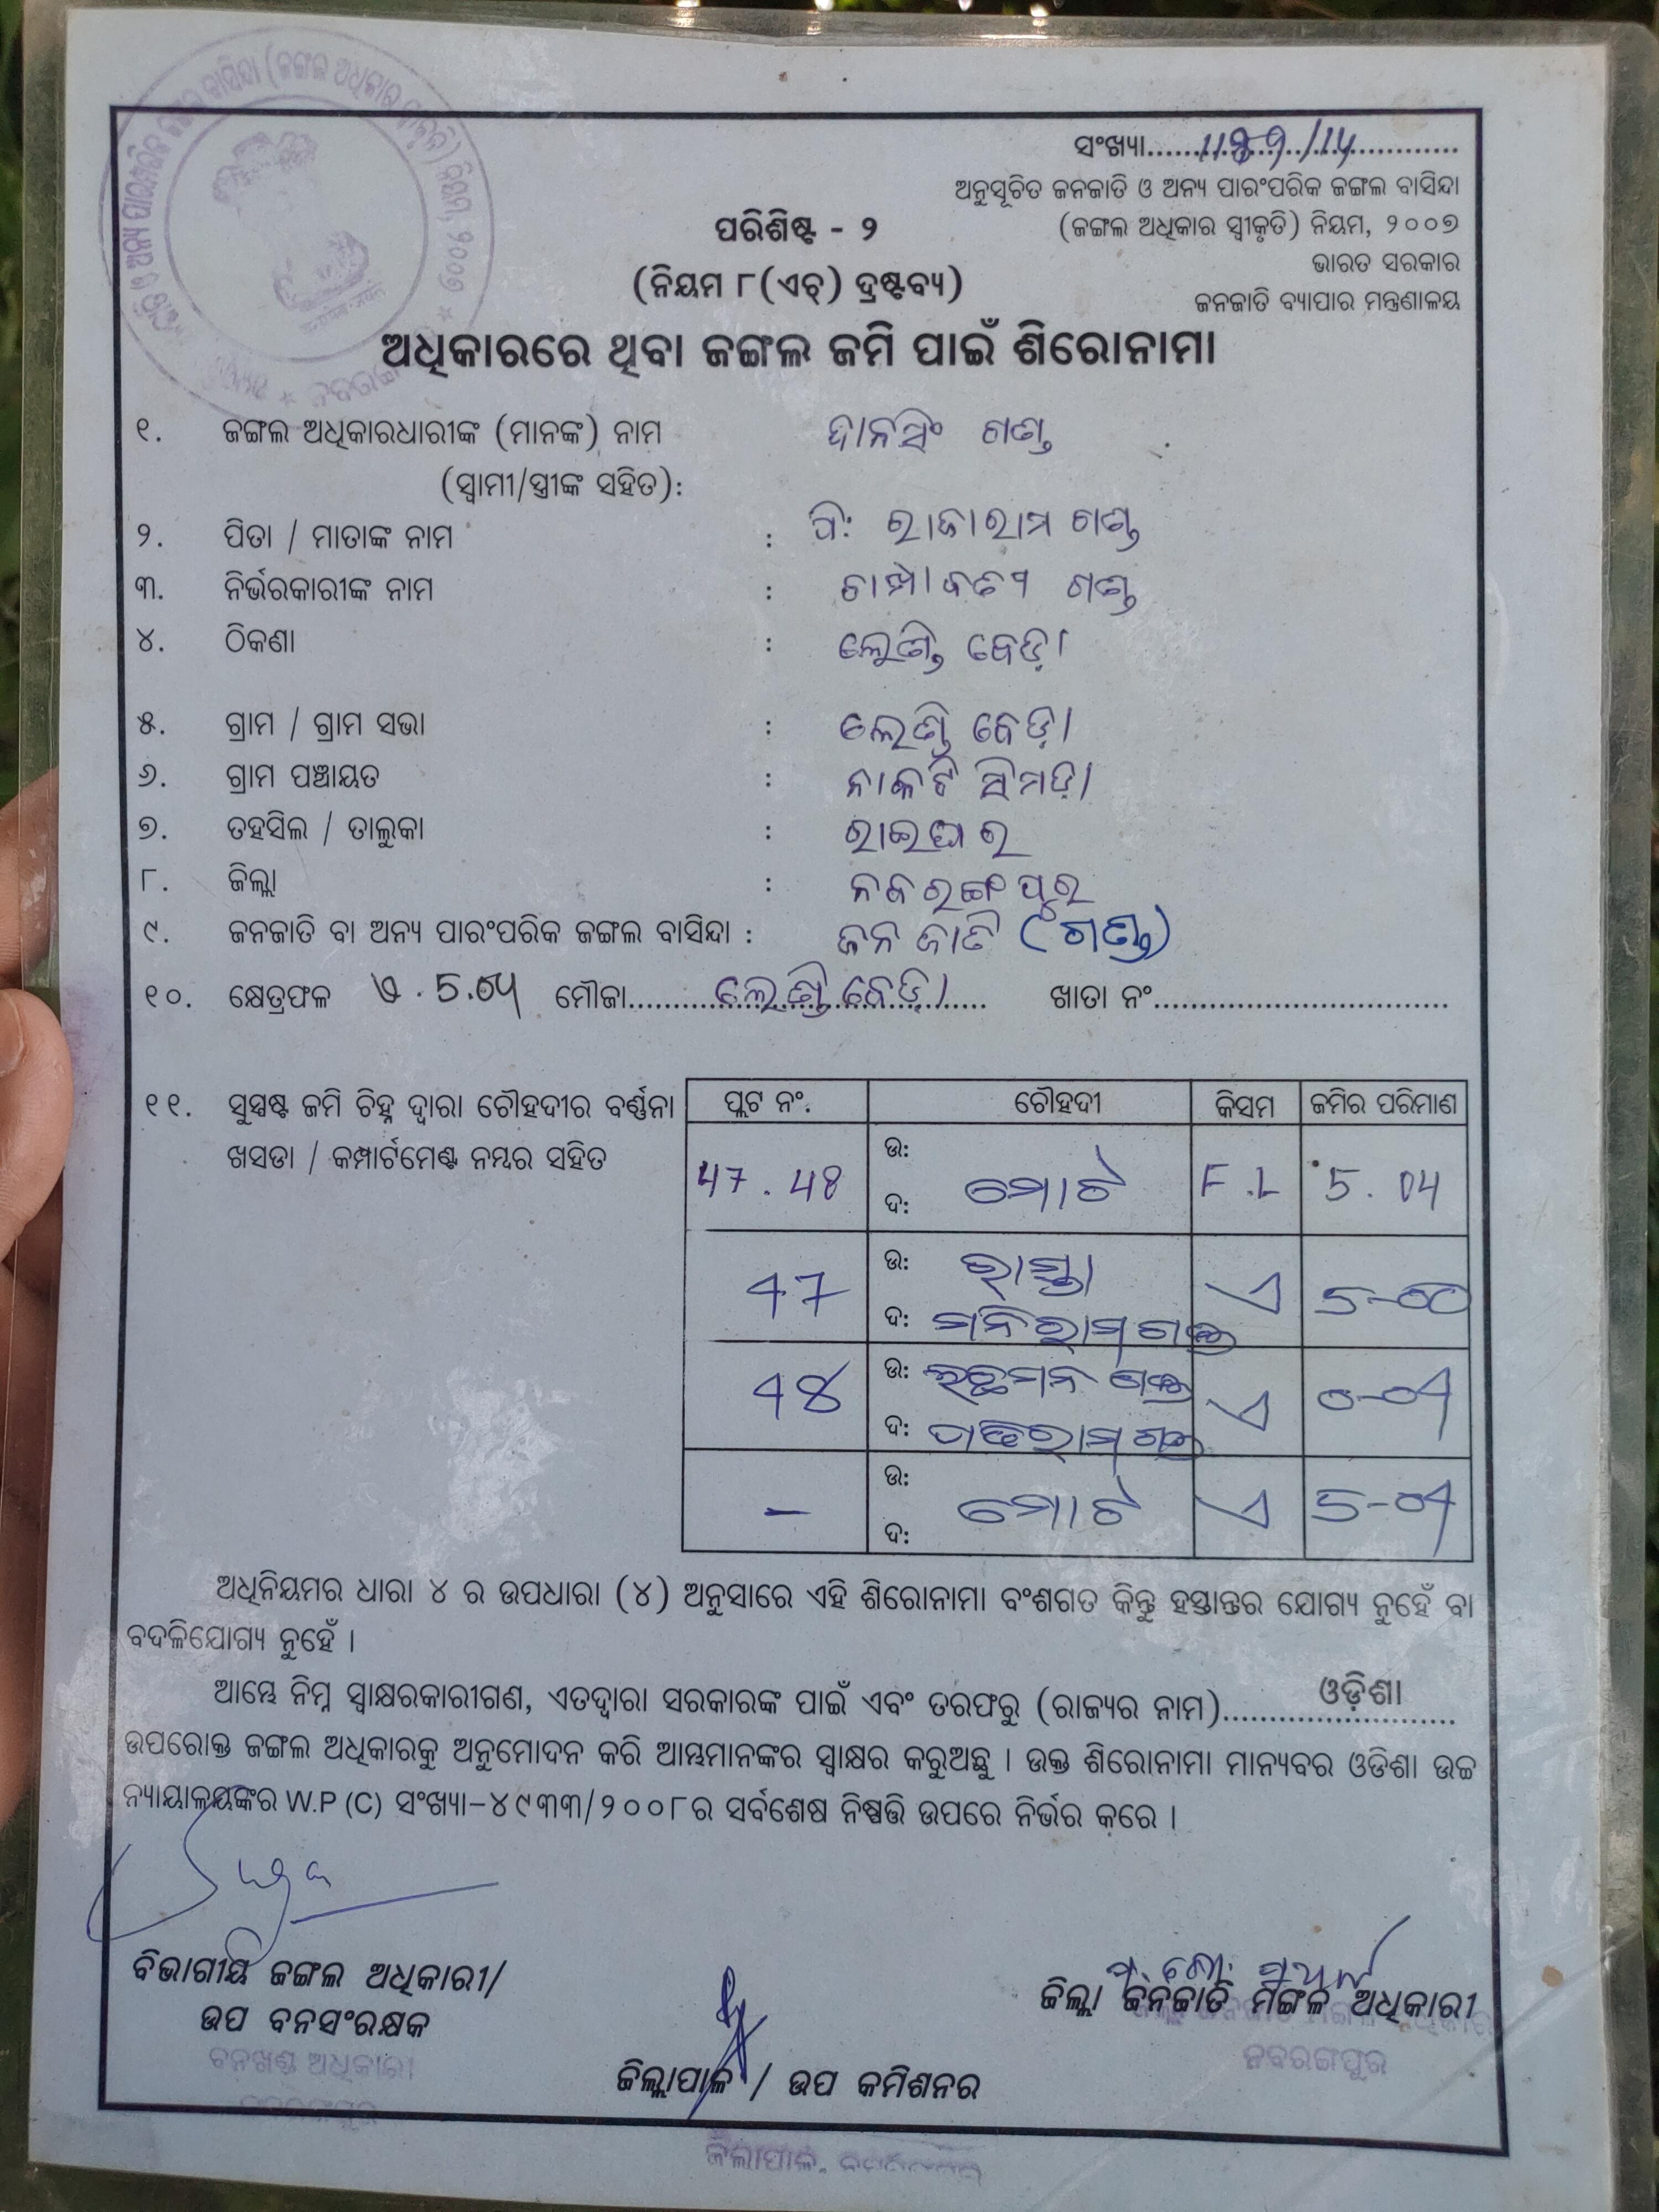 ସଂଖ୍ୟା
ଅନୁସୂଚିତ ଜନଜାତି ଓ ଅନ୍ୟ ପାରଂପରିକ ଜଙ୍ଗଲ ବାସିନ୍ଦା
(ଜଙ୍ଗଲ ଅଧିକାର ସ୍ୱୀକୃତି) ନିୟମ, ୨୦୦୭
ଭାରତ ସରକାର
ଜନଜାତି ବ୍ୟାପାର ମନ୍ତ୍ରଣାଳୟ
ପରିଶିଷ୍ଟ - ୨
(ନିୟମ ୮(ଏଚ୍) ଦ୍ରଷ୍ଟବ୍ୟ)
ଅଧିକାରରେ ଥିବା ଜଙ୍ଗଲ ଜମି ପାଇଁ ଶିରୋନାମା
୧. ଜଙ୍ଗଲ ଅଧିକାରଧାରୀଙ୍କ (ମାନଙ୍କ) ନାମ ଦାନସିଂ ଗଣ୍ଡ
(ସ୍ୱାମୀ/ସ୍ତ୍ରୀଙ୍କ ସହିତ):
୨. ପିତା / ମାତାଙ୍କ ନାମ : ପି: ରାଜାରାମ ଗଣ୍ଡ
୩. ନିର୍ଭରକାରୀଙ୍କ ନାମ : ଚାମ୍ପାବତୀ ଗଣ୍ଡ
୪. ଠିକଣା : ଲେଣ୍ଡି ବେଡ଼ା
୫. ଗ୍ରାମ / ଗ୍ରାମ ସଭା : ଲେଣ୍ଡି ବେଡ଼ା
୬. ଗ୍ରାମ ପଞ୍ଚାୟତ : ନାକଟି ସିମଡ଼ା
୭. ତହସିଲ / ତାଲୁକା : ରାଇଘର
୮. ଜିଲ୍ଲା : ନବରଙ୍ଗପୁର
୯. ଜନଜାତି ବା ଅନ୍ୟ ପାରଂପରିକ ଜଙ୍ଗଲ ବାସିନ୍ଦା : ଜନ ଜାତି (ଗଣ୍ଡ)
୧୦. କ୍ଷେତ୍ରଫଳ ଏ. 5.04 ମୌଜା ଲେଣ୍ଡି ବେଡ଼ା ଖାତା ନଂ
୧୧. ସୁସ୍ପଷ୍ଟ ଜମି ଚିହ୍ନ ଦ୍ୱାରା ଚୌହଦୀର ବର୍ଣ୍ଣନା
ଖସଡା / କମ୍ପାର୍ଟମେଣ୍ଟ ନମ୍ବର ସହିତ
ପ୍ଲଟ ନଂ. ଚୌହଦୀ କିସମ ଜମିର ପରିମାଣ
47. 48 ଉ: ଦ: ମୋଟ F.L 5.04
47 ଉ: ରାସ୍ତା ଏ 5-00
ଦ: ମନିରାମ ଗଣ୍ଡ
48 ଉ: ଲଛମନ ଗଣ୍ଡ ଏ 0-04
ଦ: ଗଣ୍ଡ
- ଉ: ଦ: ମୋଟ ଏ 5-04
ଅଧିନିୟମର ଧାରା ୪ ର ଉପଧାରା (୪) ଅନୁସାରେ ଏହି ଶିରୋନାମା ବଂଶଗତ କିନ୍ତୁ ହସ୍ତାନ୍ତର ଯୋଗ୍ୟ ନୁହେଁ ବା
ବଦଳିଯୋଗ୍ୟ ନୁହେଁ ।
ଆମ୍ଭେ ନିମ୍ନ ସ୍ୱାକ୍ଷରକାରୀଗଣ, ଏତଦ୍ଦ୍ୱାରା ସରକାରଙ୍କ ପାଇଁ ଏବଂ ତରଫରୁ (ରାଜ୍ୟର ନାମ) ଓଡ଼ିଶା
ଉପରୋକ୍ତ ଜଙ୍ଗଲ ଅଧିକାରକୁ ଅନୁମୋଦନ କରି ଆମ୍ଭମାନଙ୍କର ସ୍ୱାକ୍ଷର କରୁଅଛୁ । ଉକ୍ତ ଶିରୋନାମା ମାନ୍ୟବର ଓଡିଶା ଉଚ୍ଚ
ନ୍ୟାୟାଳୟଙ୍କର W.P (C) ସଂଖ୍ୟା-୪୯୩୩/୨୦୦୮ର ସର୍ବଶେଷ ନିଷ୍ପତ୍ତି ଉପରେ ନିର୍ଭର କରେ ।
ବିଭାଗୀୟ ଜଙ୍ଗଲ ଅଧିକାରୀ/
ଉପ ବନସଂରକ୍ଷକ
ବନଖଣ୍ଡ ଅଧିକାରୀ
ଜିଲ୍ଲାପାଳ / ଉପ କମିଶନର
ଜିଲ୍ଲା ଜନଜାତି ମଙ୍ଗଳ ଅଧିକାରୀ
ନବରଙ୍ଗପୁର